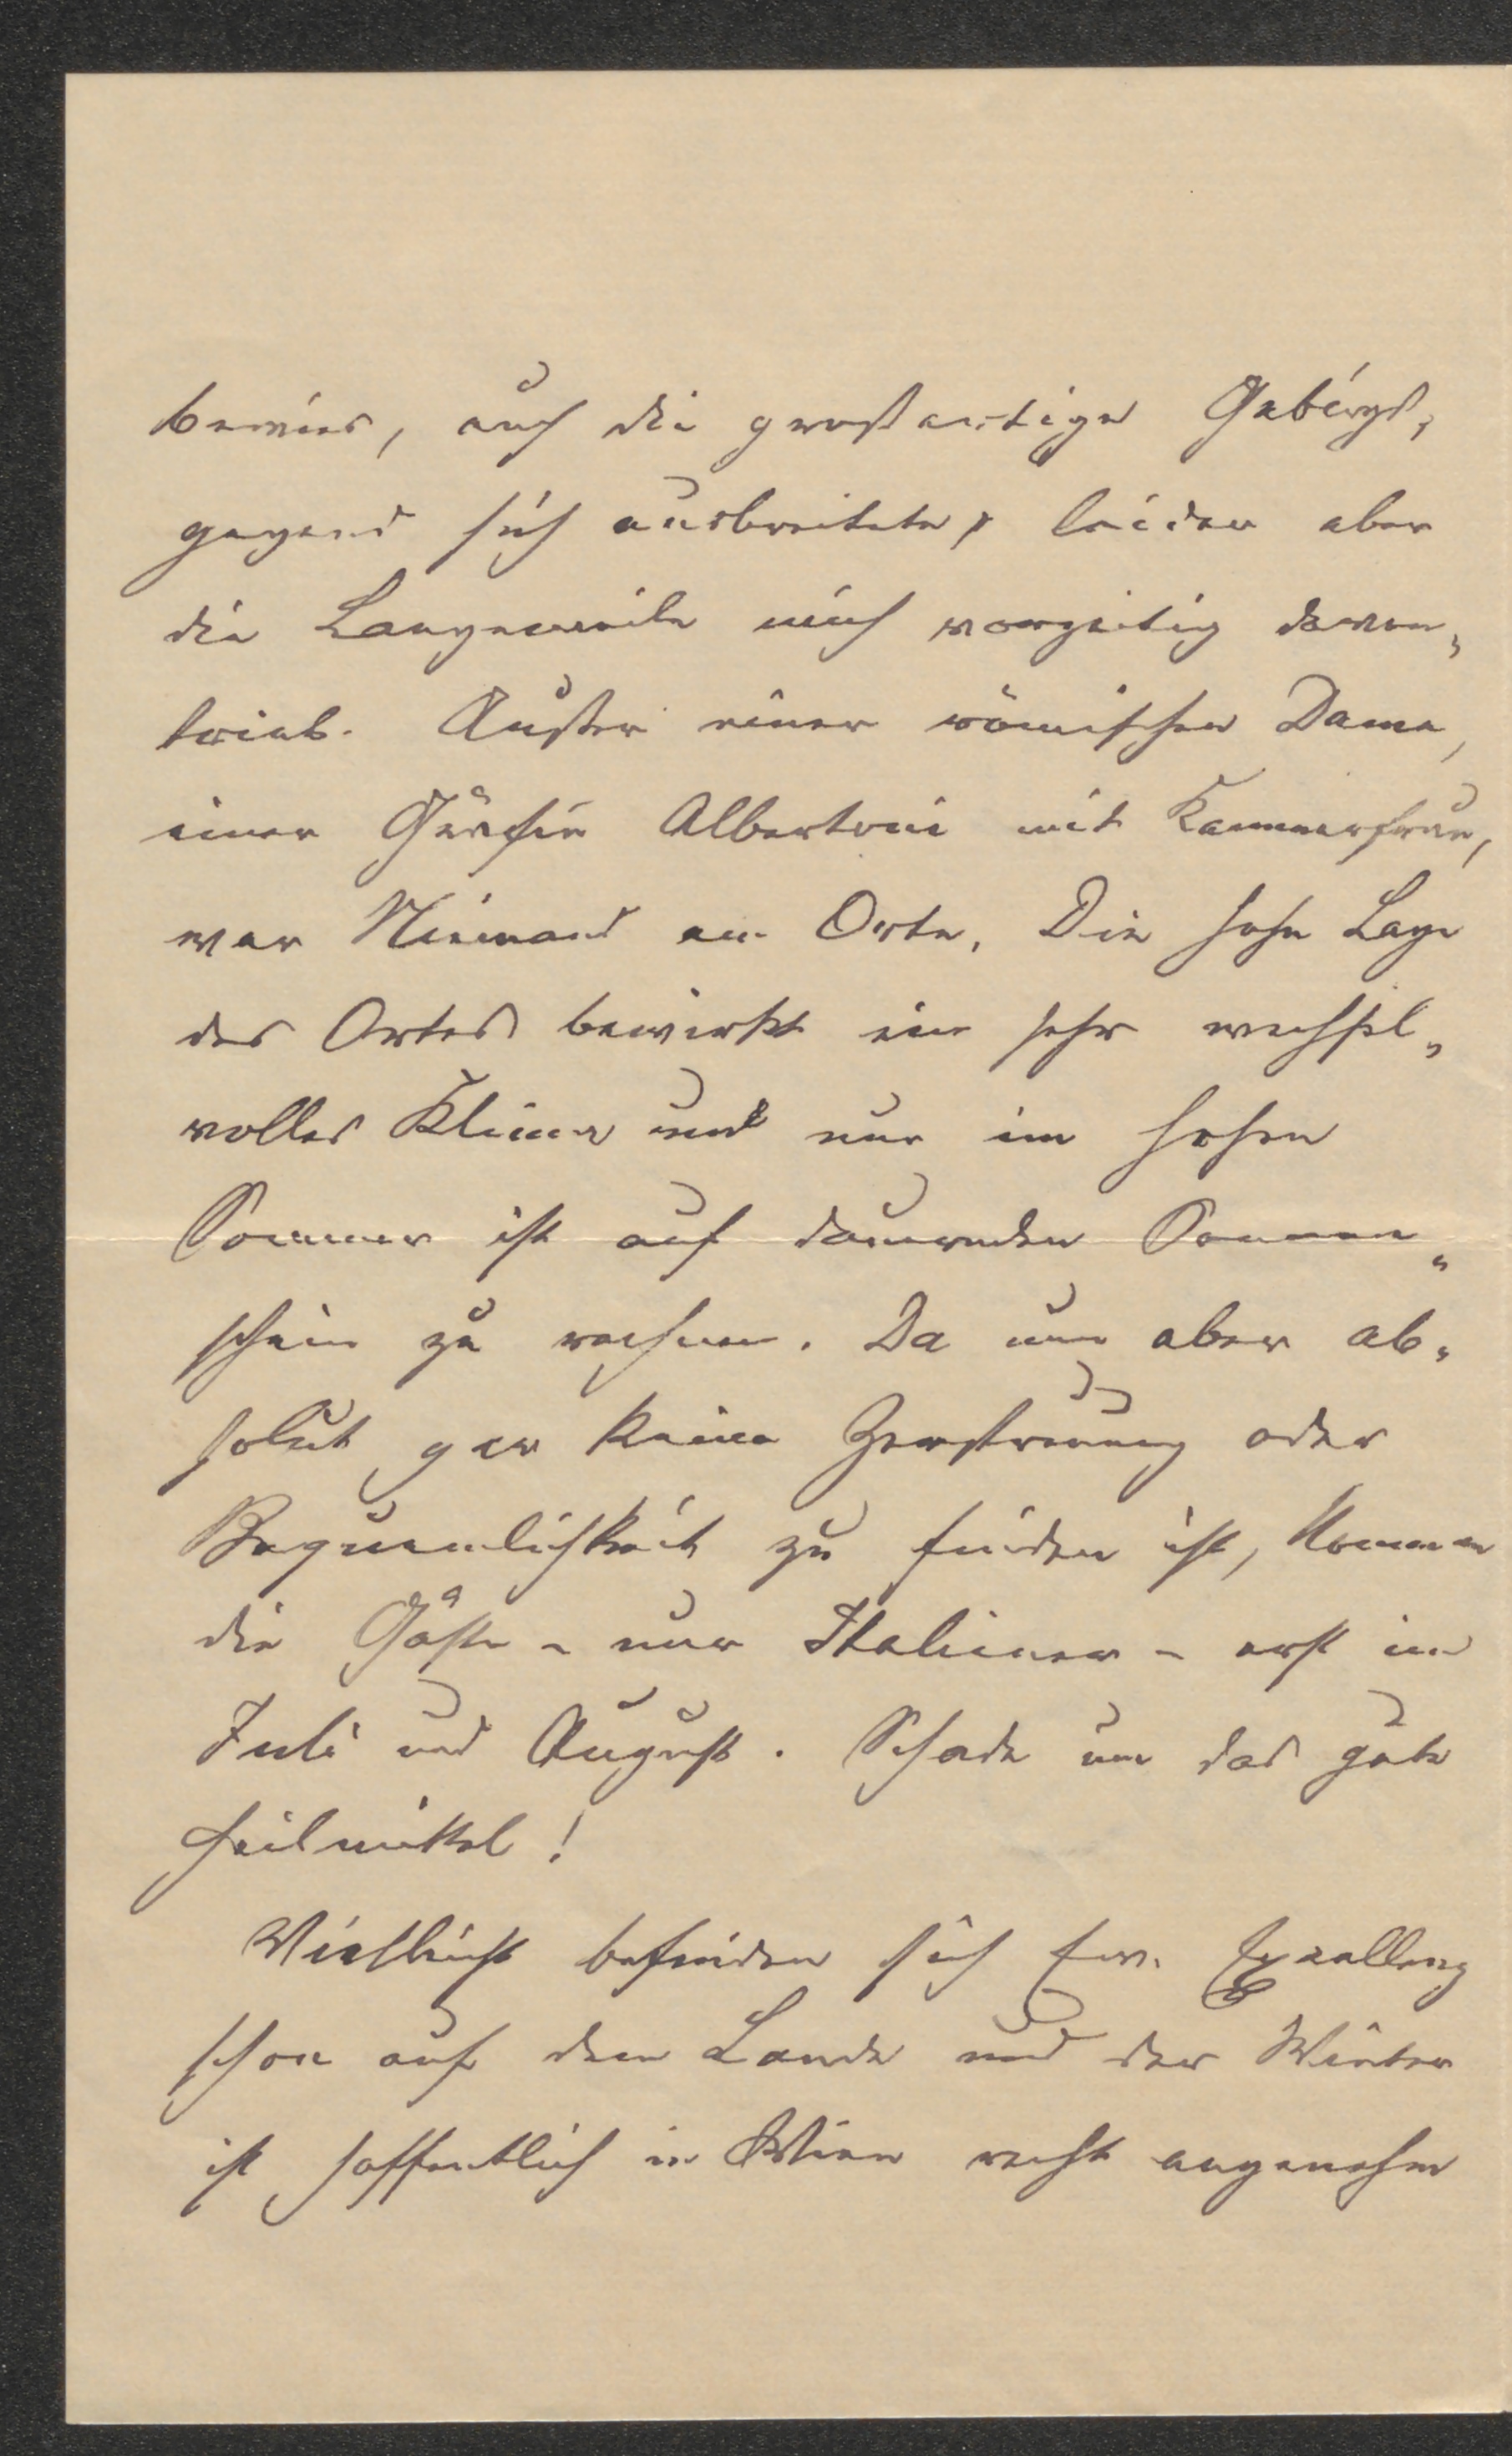 bewies, auch die großartige Gebirgs,
gegend sich ausbreitete, leider aber
die Langeweile mich vorzeitig davon„
trieb. Außer einer römischen Dame,
einer Gräfin Albertoni mit Kammerfrau,
war Niemand am Orte. Die hohe Lage
des Ortes bewirkt ein sehr wechsel„
volles Klima und nur im hohen
Sommer ist auf dauernden Sonnen„
schein zu rechnen. Da nun aber ab„
solut gar keine Zerstreuung oder
Bequemlichkeit zu finden ist, kommen
die Gäste - nur Italiener - erst im
Juli und August. Schade um das gute
Heilmittel!
Vielleicht befinden sich Ew. Exzellenz
schon auf dem Lande und der Winter
ist hoffentlich in Wien recht angenehm